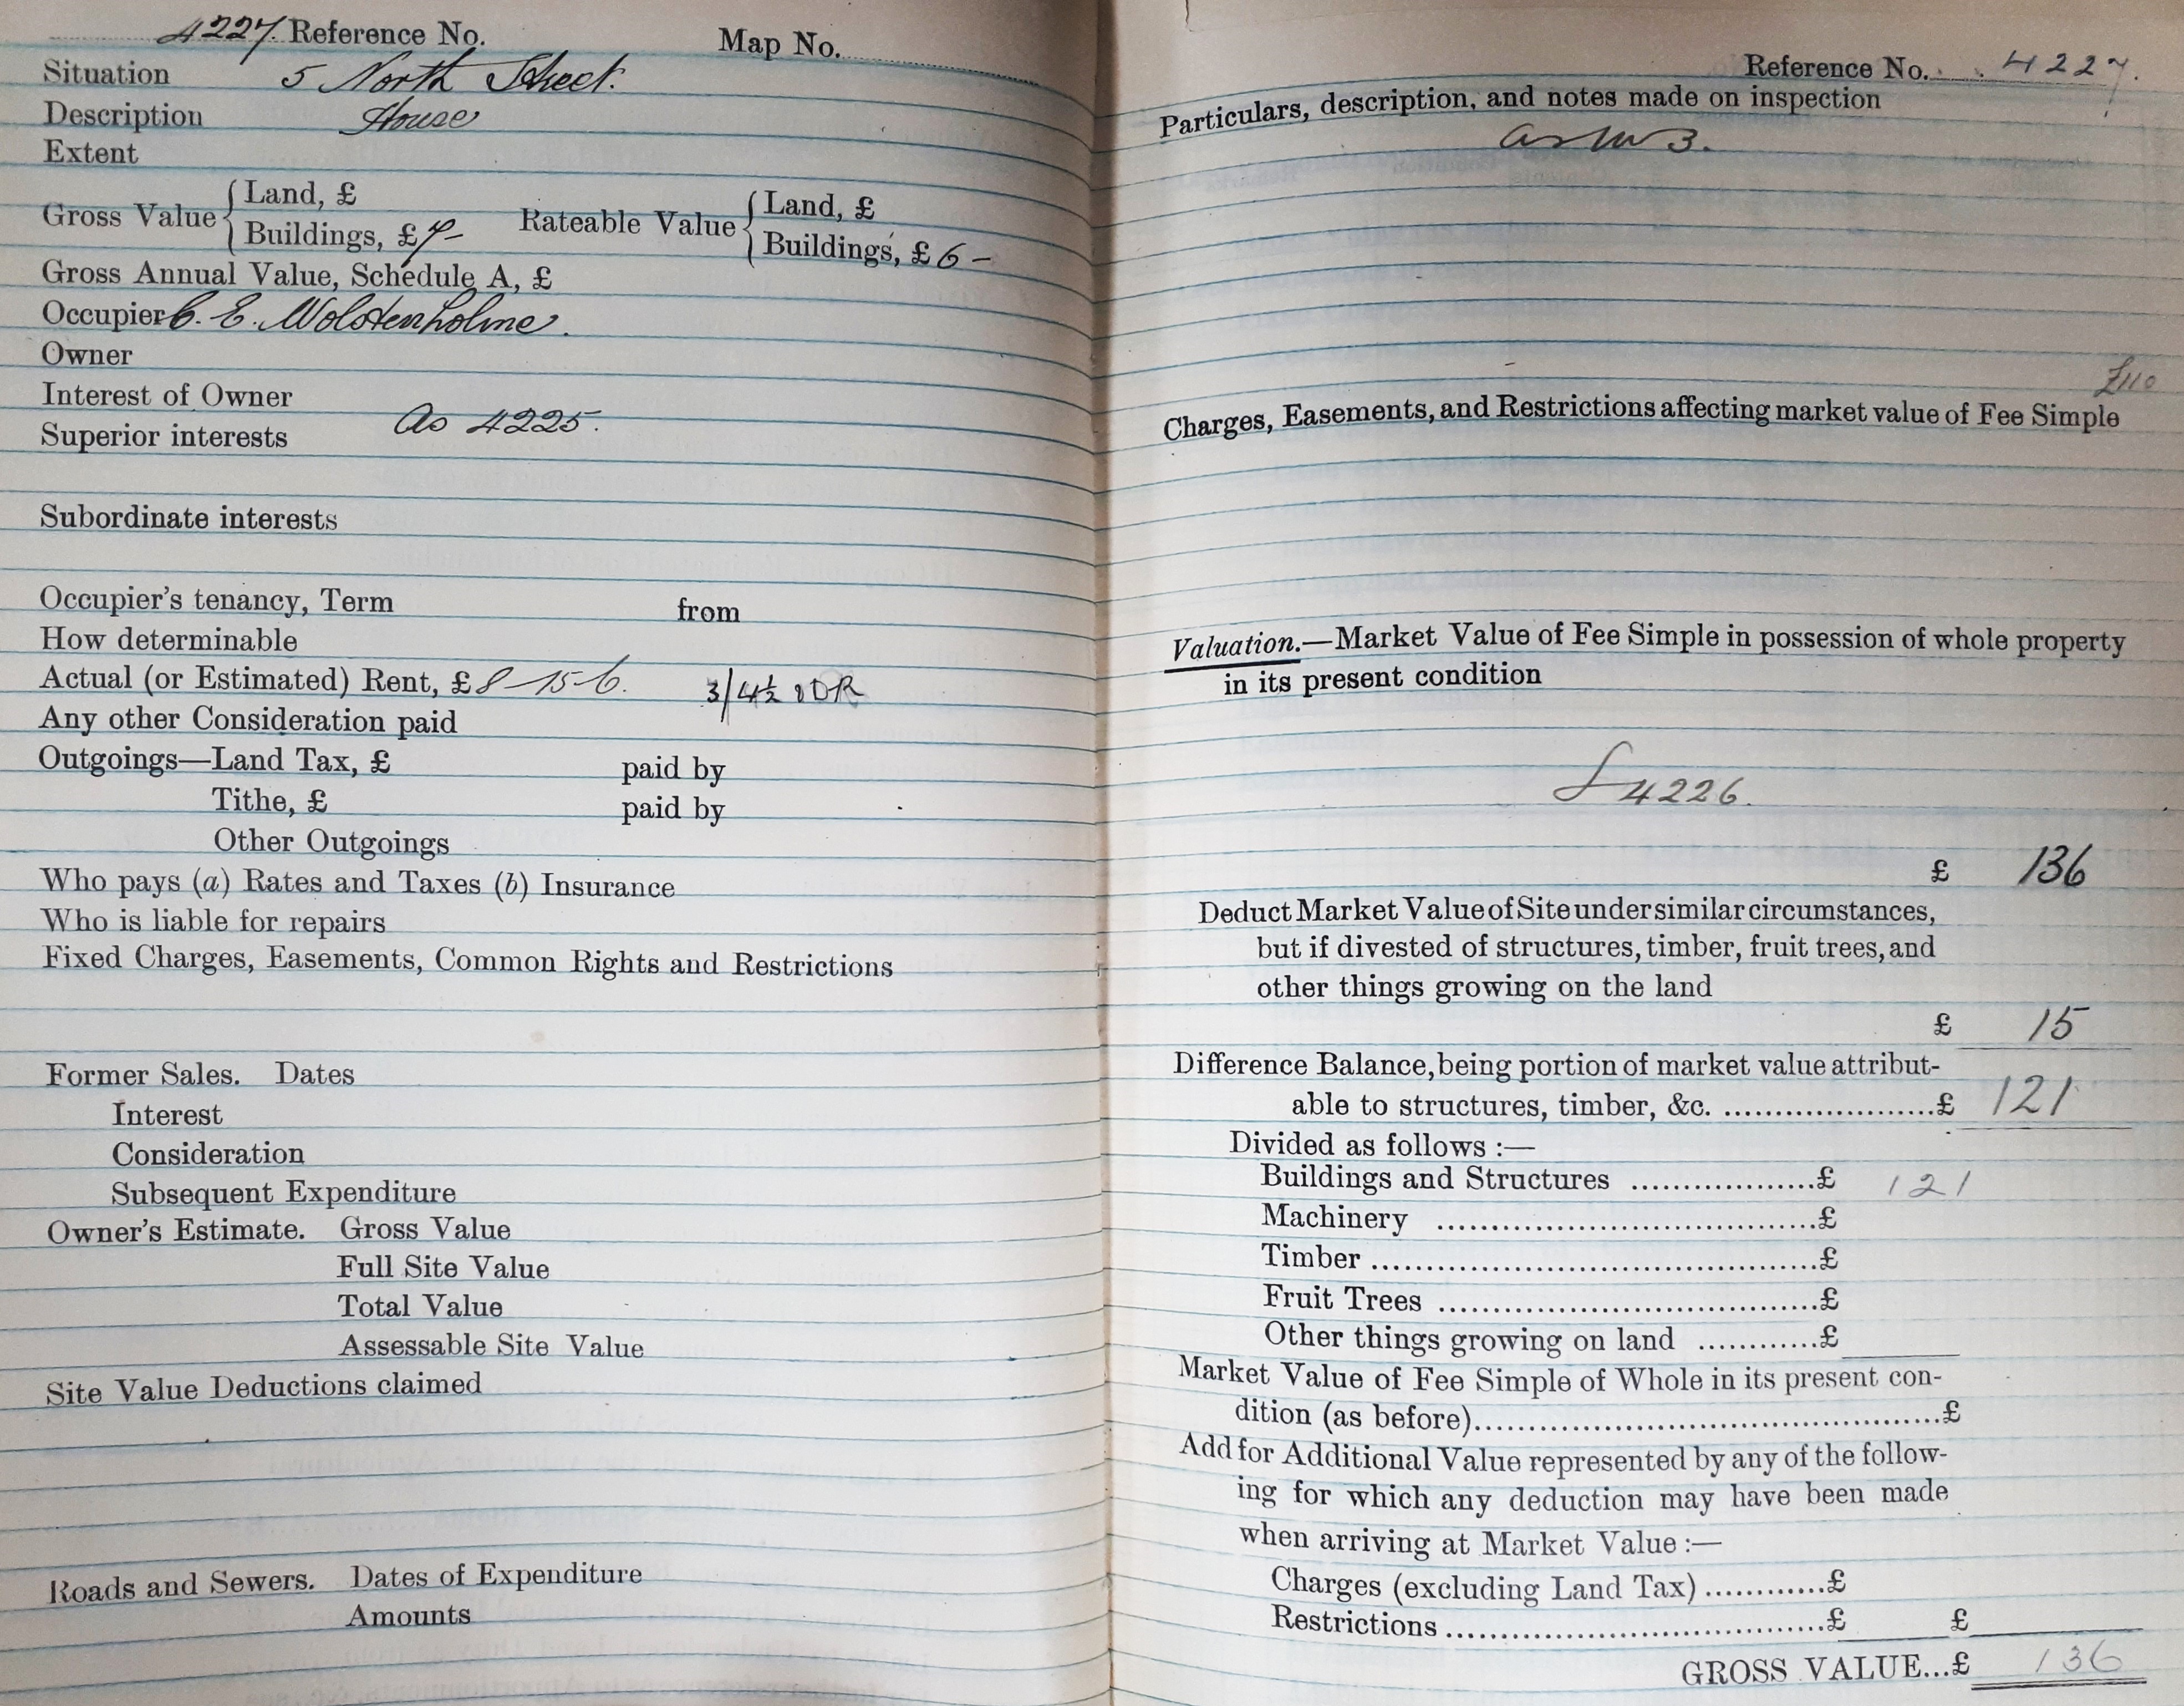 4227. Reference No. Map No.
Situation 5 North Street.
Description House
Extent
Gross Value { Land, £
Buildings, £ 7-
Rateable Value { Land, £
Buildings, £ 6 -
Gross Annual Value, Schedule A, £
Occupier C. E. Wolstenholme.
Owner
Interest of Owner
As 4225.
Superior interests
Subordinate interests
Occupier's tenancy, Term from
How determinable
Actual (or Estimated) Rent, £ 8-15-6. 3/4½
Any other Consideration paid
Outgoings—Land Tax, £ paid by
Tithe, £ paid by
Other Outgoings
Who pays (a) Rates and Taxes (b) Insurance
Who is liable for repairs
Fixed Charges, Easements, Common Rights and Restrictions
Former Sales. Dates
Interest
Consideration
Subsequent Expenditure
Owner's Estimate. Gross Value
Full Site Value
Total Value
Assessable Site Value
Site Value Deductions claimed
Roads and Sewers. Dates of Expenditure
Amounts
Reference No. 4227.
Particulars, description, and notes made on inspection
as No 3.
£110
Charges, Easements, and Restrictions affecting market value of Fee Simple
Valuation.—Market Value of Fee Simple in possession of whole property
in its present condition
4226.
£ 136
Deduct Market Value of Site under similar circumstances,
but if divested of structures, timber, fruit trees, and
other things growing on the land
£ 15
Difference Balance, being portion of market value attribut-
able to structures, timber, &c. ......................£ 121
Divided as follows :—
Buildings and Structures ...................£ 121
Machinery .......................................£
Timber ..............................................£
Fruit Trees .......................................£
Other things growing on land ............£
Market Value of Fee Simple of Whole in its present con-
dition (as before)..............................................£
Add for Additional Value represented by any of the follow-
ing for which any deduction may have been made
when arriving at Market Value :—
Charges (excluding Land Tax) ............£
Restrictions ......................................£ £
GROSS VALUE...£ 136